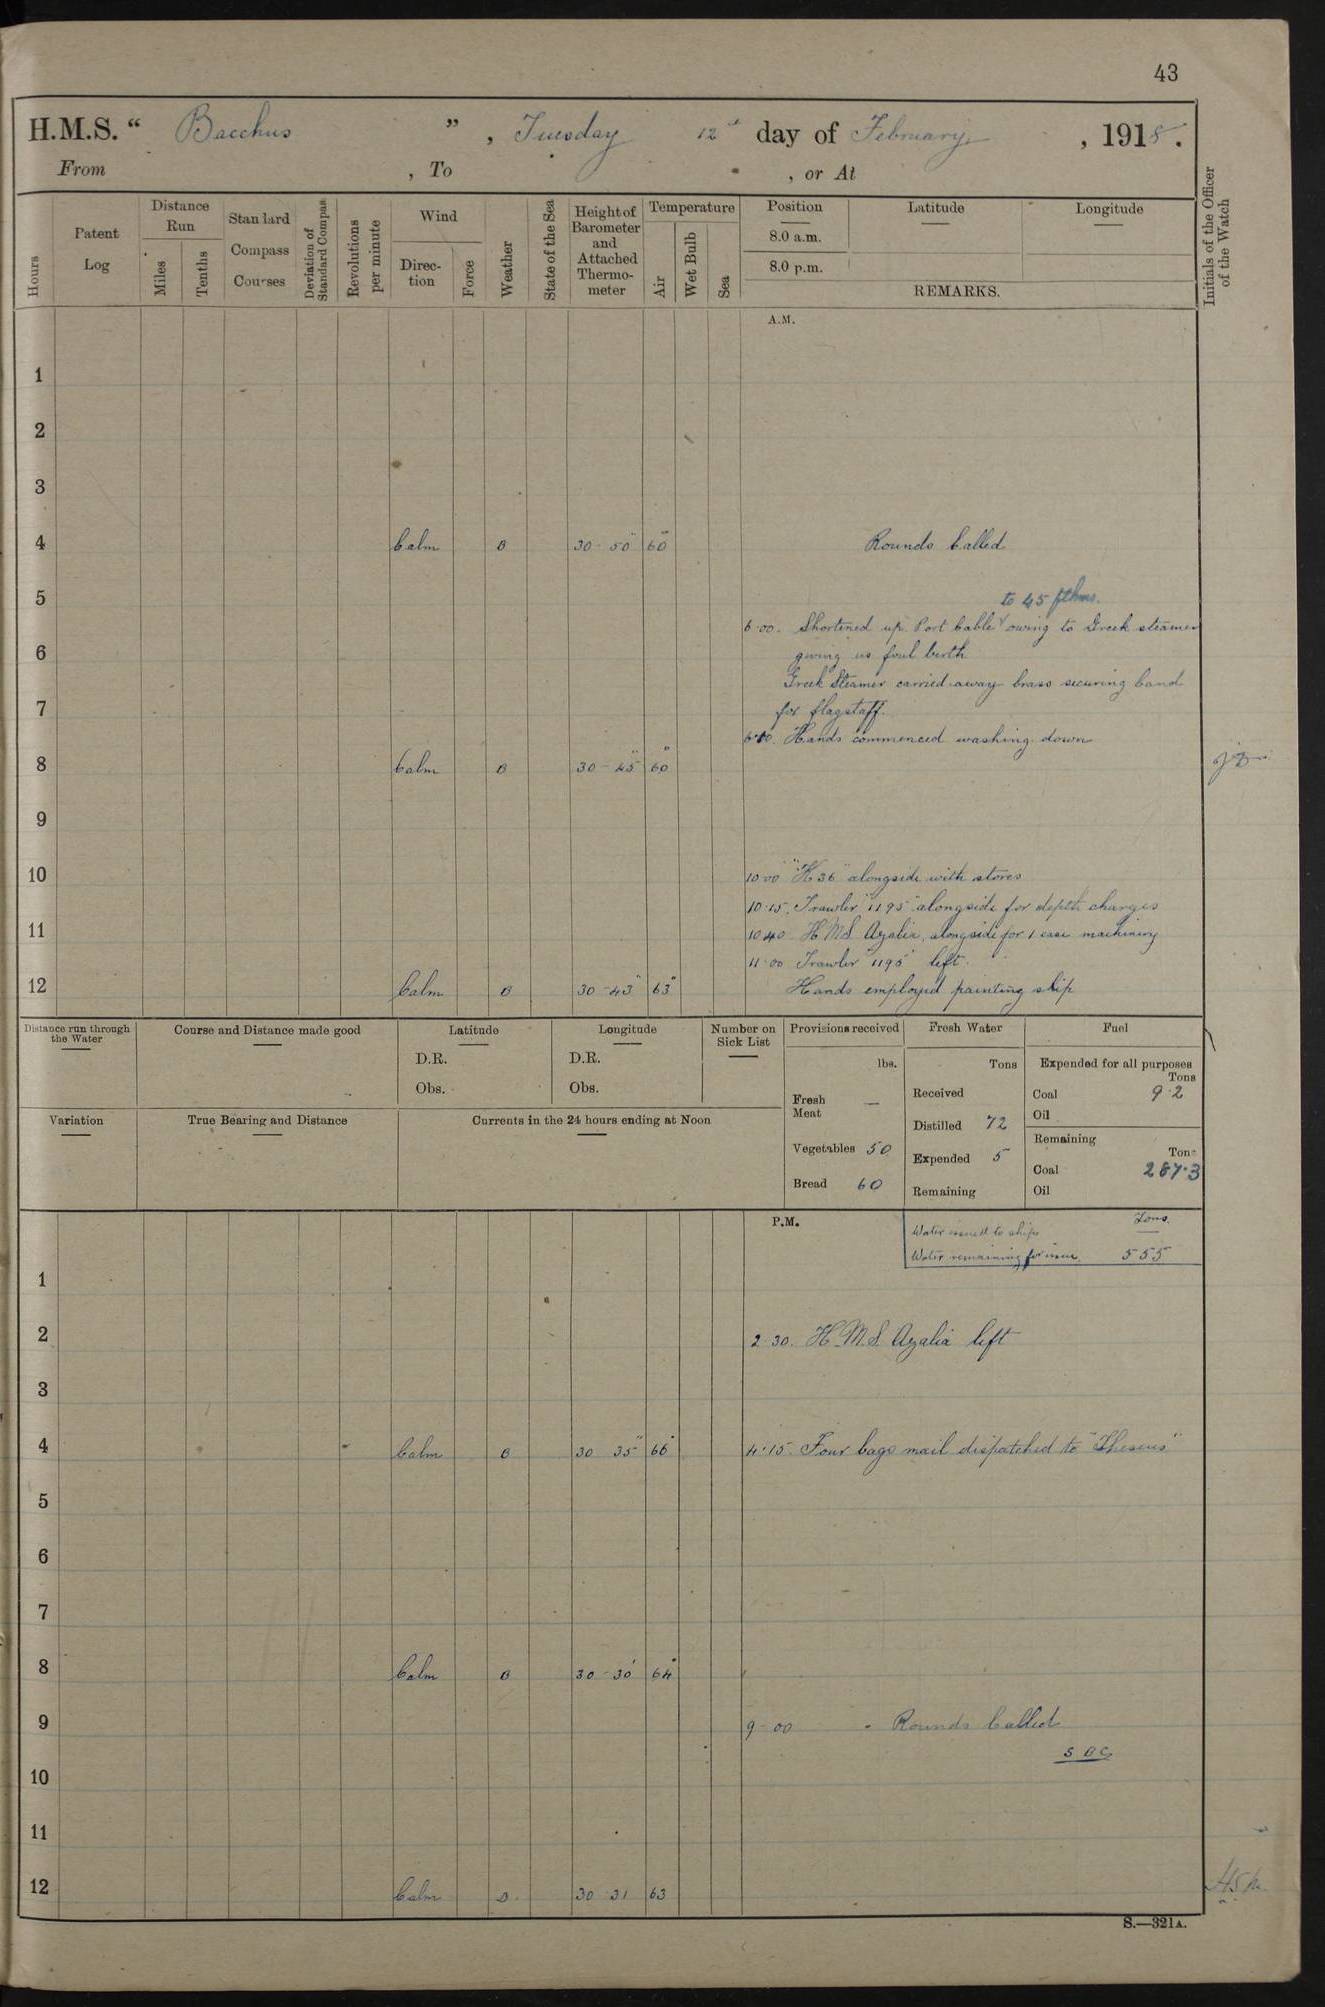 43
H.M.S. “ Bacchus ” , Tuesday 12th day of February , 1918.
From , To , or At
Initials of the Officer of the Watch
Hours
Patent Log
Distance Run
Miles
Tenths
Standard Compass Courses
Deviation of Standard Compass
Revolutions per minute
Wind
Direction
Force
Weather
State of the Sea
Height of Barometer and Attached Thermometer
Temperature
Air
Wet Bulb
Sea
Position
8.0 a.m.
8.0 p.m.
Latitude
Longitude
REMARKS.
A.M.
1
2
3
4 Calm B 30-50 60 Rounds Called
5 to 45 fthms.
6.00. Shortened up Port Cable owing to Greek steamer
6 giving us foul berth
Greek Steamer carried away brass securing band
7 for flagstaff.
Hands commenced washing down
8 Calm B 30-45 60
9
10 10.00 "K36" alongside with stores
10.15. Trawler "1195" alongside for depth charges
11 10.40 H.M.S. Azalia, alongside for 1 case machinery
11.00 Trawler "1195" left.
12 Calm B 30-43 63 Hands employed painting ship
Distance run through the Water
Course and Distance made good
Latitude
D.R.
Obs.
Longitude
D.R.
Obs.
Number on Sick List
Provisions received
lbs.
Fresh Meat —
Vegetables 50
Bread 60
Fresh Water
Tons
Received
Distilled 72
Expended 5
Remaining
Fuel
Expended for all purposes
Tons
Coal 9.2
Oil
Remaining
Tons
Coal 287.3
Oil
Variation
True Bearing and Distance
Currents in the 24 hours ending at Noon
P.M.
Tons.
Water issued to ships —
Water remaining for issue. 555
1
2 2.30. H.M.S. Azalia left
3
4 Calm B 30 35 66 4.15. Four bags mail dispatched to "Theseus"
5
6
7
8 Calm B 30-30 64
9 9-00 - Rounds Called
10
11
12 Calm B. 30 31 63
S.—321A.